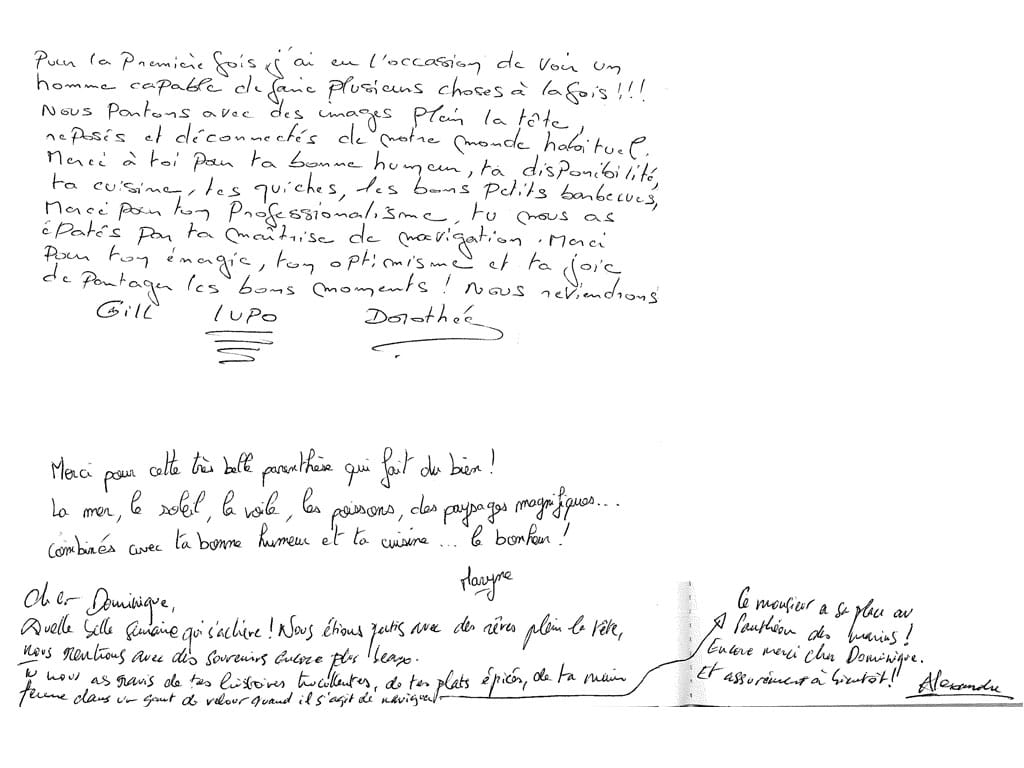 Pour la première fois, j'ai eu l'occasion de voir un
homme capable de faire plusieurs choses à la fois !!!
Nous partons avec des images plein la tête,
reposés et déconnectés de notre monde habituel.
Merci à toi pour ta bonne humeur, ta disponibilité,
ta cuisine, tes quiches, tes bons petits barbecues,
Merci pour ton professionalisme, tu nous as
épatés par ta maîtrise de navigation. Merci
pour ton énergie, ton optimisme et ta joie
de partager les bons moments ! Nous reviendrons
Gill LUPO Dorothée
Merci pour cette très belle parenthèse qui fait du bien !
La mer, le soleil, la voile, les poissons, des paysages magnifiques...
combinés avec ta bonne humeur et ta cuisine ... le bonheur !
Maryne
Cher Dominique,
Quelle belle semaine qui s'achève ! Nous étions partis avec des rêves plein la tête,
nous rentrions avec des souvenirs encore plus beaux.
Tu nous as ravis de tes histoires truculentes, de tes plats épicés, de ta main
ferme dans un gant de velour quand il s'agit de naviguer
Ce monsieur a sa place au
Panthéon des marins !
Encore merci cher Dominique.
Et assurément à bientôt !!
Alexandre